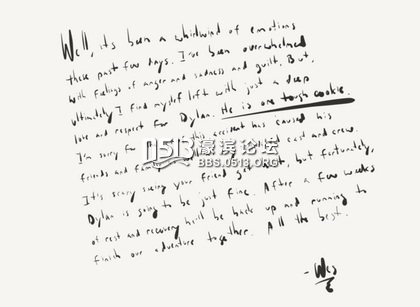 Well, its been a whirlwind of emotions
these past few days. I've been overwhelmed
with feelings of anger and sadness and guilt. But,
ultimately I find myself left with just a deep
love and respect for Dylan. He is one tough cookie.
I'm sorry for this accident has caused his
friends and cast and crew.
It's scary seeing your friend get but fortunately,
Dylan is going to be just fine. After a few weeks
of rest and recovery he'll be back up and running to
finish our adventure together. All the best.
- Wes
0513 濠滨论坛
BBS.0513.ORG